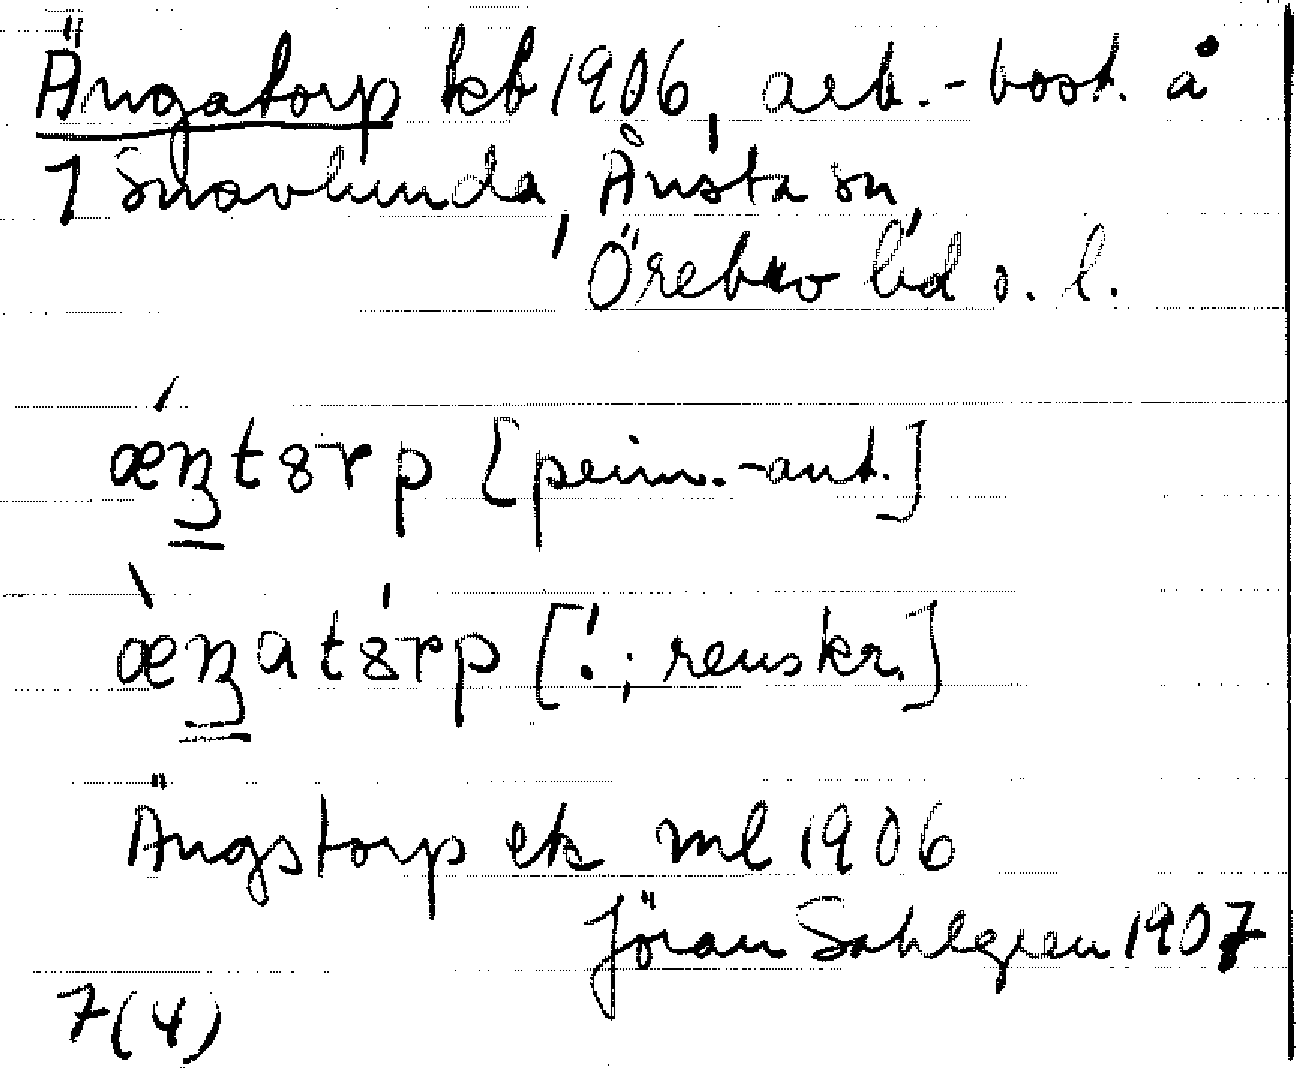 Ängatorp kb 1906, arb.-bost. å
1 Snavlunda, Ånsta sn,
Örebro lfd o. l.
ǽŋtɷrp [prim.-ant.]
æ̀ŋatɷ́rp [!; renskr.]
Ängstorp ek ml 1906
Jöran Sahlgren 1907
7(4)